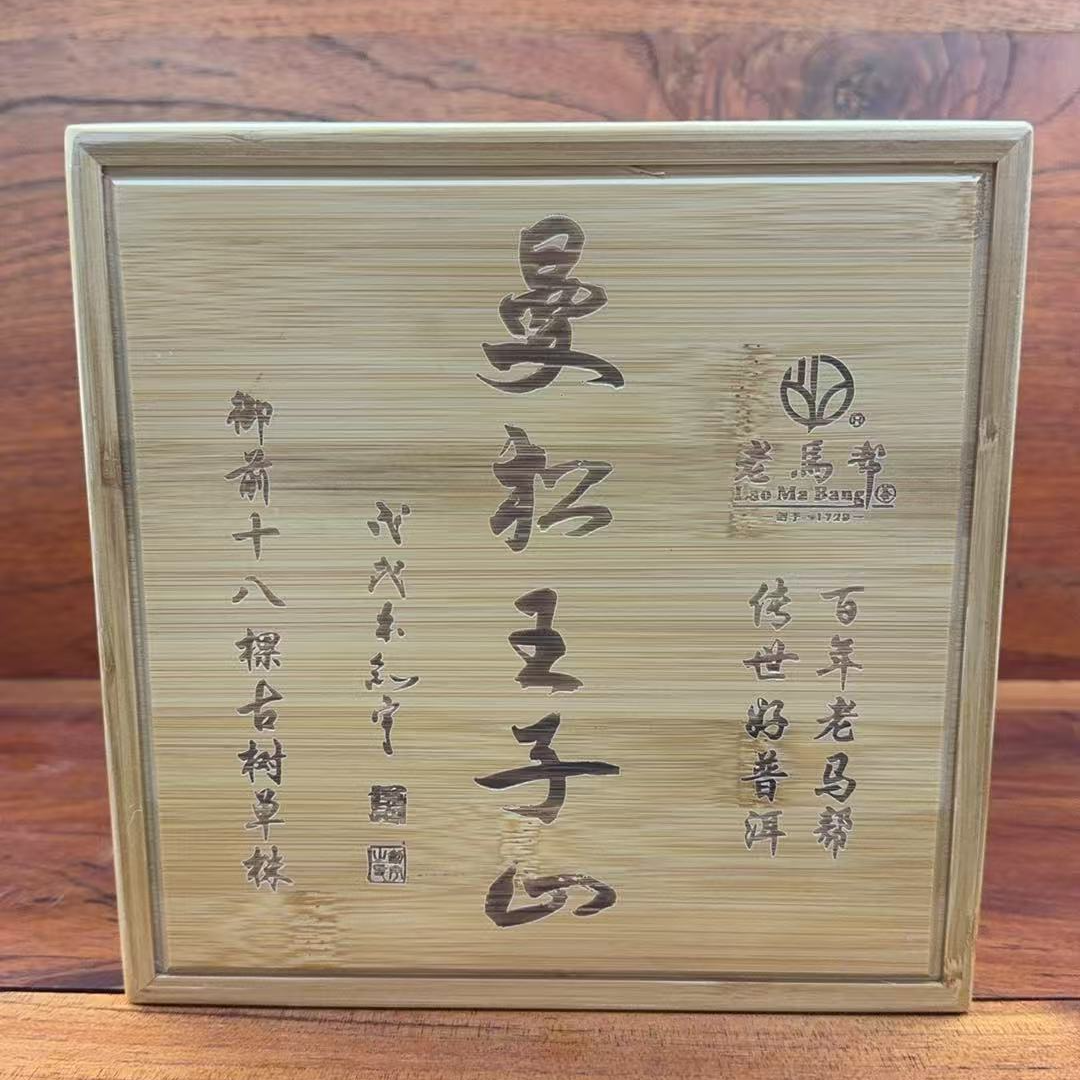 老馬帮
Lao Ma Bang 茶
创于·1729
百年老马帮
传世好普洱
曼松王子山
戊戌
御前十八棵古树单株